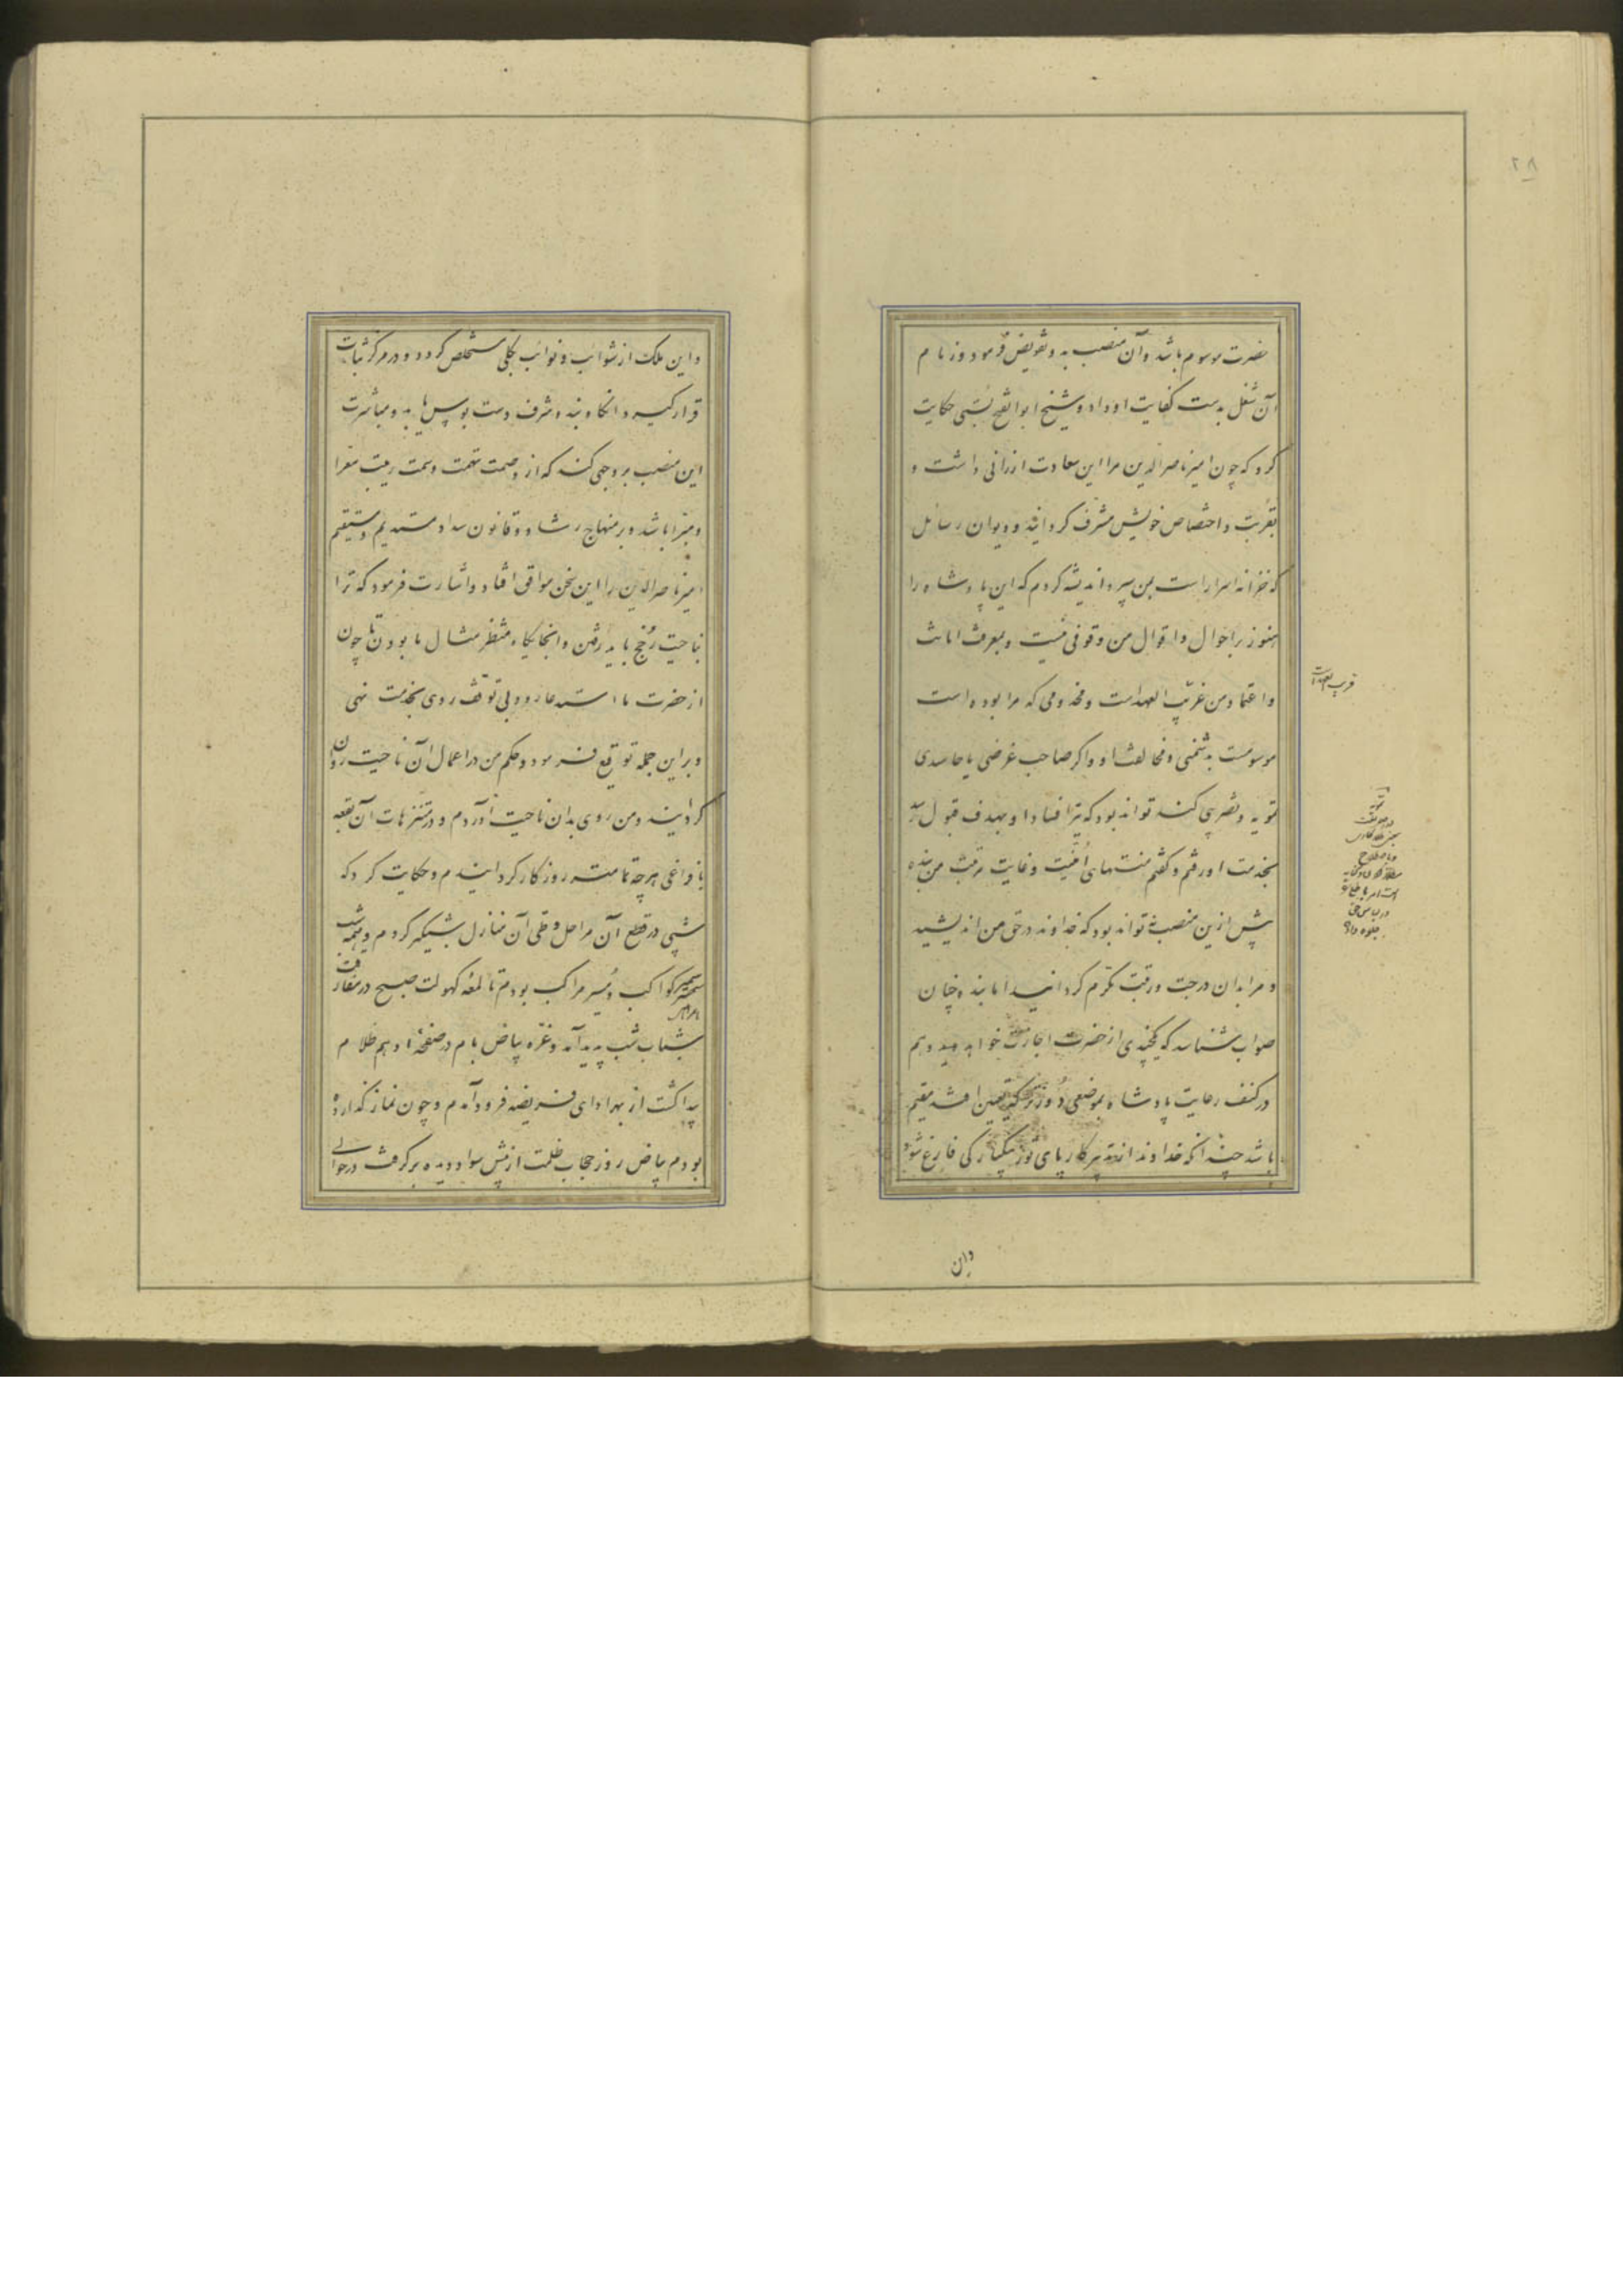 ۲۸
حضرت موسوم باشد و آن منصب بدو تفویض فرمود و زمام
آن شغل بدست کفایت او داد و شیخ ابوالفتح بستی حکایت
کرد که چون امیر ناصرالدین مرا این سعادت ارزانی داشت و
بقربت و اختصاص خویش مشرف گردانید و دیوان رسائل
که خزانه اسرار است بمن سپرد اندیشه کردم که این پادشاه را
هنوز بر احوال و اقوال من وقوفی نیست و بمعرفت امانت
و اعتماد من غریب العهدست و مخدومی که مرا بوده است
موسومست بدشمنی و مخالفت او و اگر صاحب غرضی یا حاسدی
تمویه و تضریبی کند تواند بود که تیر افساد او بهدف قبول رسد
بخدمت او رفتم و گفتم منتهای امنیت و غایت مرتبت من بنده
بیش ازین منصب نتواند بود که خداوند در حق من اندیشید
و مرا بدان درجت و رتبت مکرم گردانید اما بنده چنان
صواب شناسد که یکچندی از حضرت اجازت خواهد و هم
در کنف رعایت پادشاه بموضعی که تعیین افتد مقیم
باشد چندانکه خداوند از تدبیر کار پای توز بیکبارگی فارغ شود
قریب العهدست
وان
و این ملک از شوائب و نوائب بکلی مستخلص گردد و در مرکز ثبات
قرار گیرد و آنگاه بنده شرف دست بوس یابد و مباشرت
این منصب بر وجهی کند که از وصمت تهمت و سمت ریبت معرا
و مبرا باشد و بر منهاج رشاد و قانون سداد مستدیم و مستقیم
امیر ناصرالدین را این سخن موافق افتاد و اشارت فرمود که ترا
بناحیت رخج باید رفتن و آنجایگاه منتظر مثال ما بودن تا چون
از حضرت ما استدعا رود بی توقف روی بخدمت نهی
و براین جمله توقیع فرمود و حکم من در اعمال آن ناحیت روان
گردانید و من روی بدان ناحیت آوردم و در متنزهات آن بقعه
با فراغی هرچه تمامتر روزگار گردانیدم و حکایت کرد که
شبی در قطع آن مراحل و طی آن منازل شبگیر کردم و همه شب
سمیر کواکب و مسیر مراکب بودم تا لمعه کهولت صبح در مفارقت
شباب شب پدید آمد و غره بیاض بام در صفحه ادهم ظلام
پیدا گشت از بهر ادای فریضه فرود آمدم و چون نماز گذارده
بودم بیاض روز حجاب ظلمت از پیش سواد دیده برگرفت در حوالی